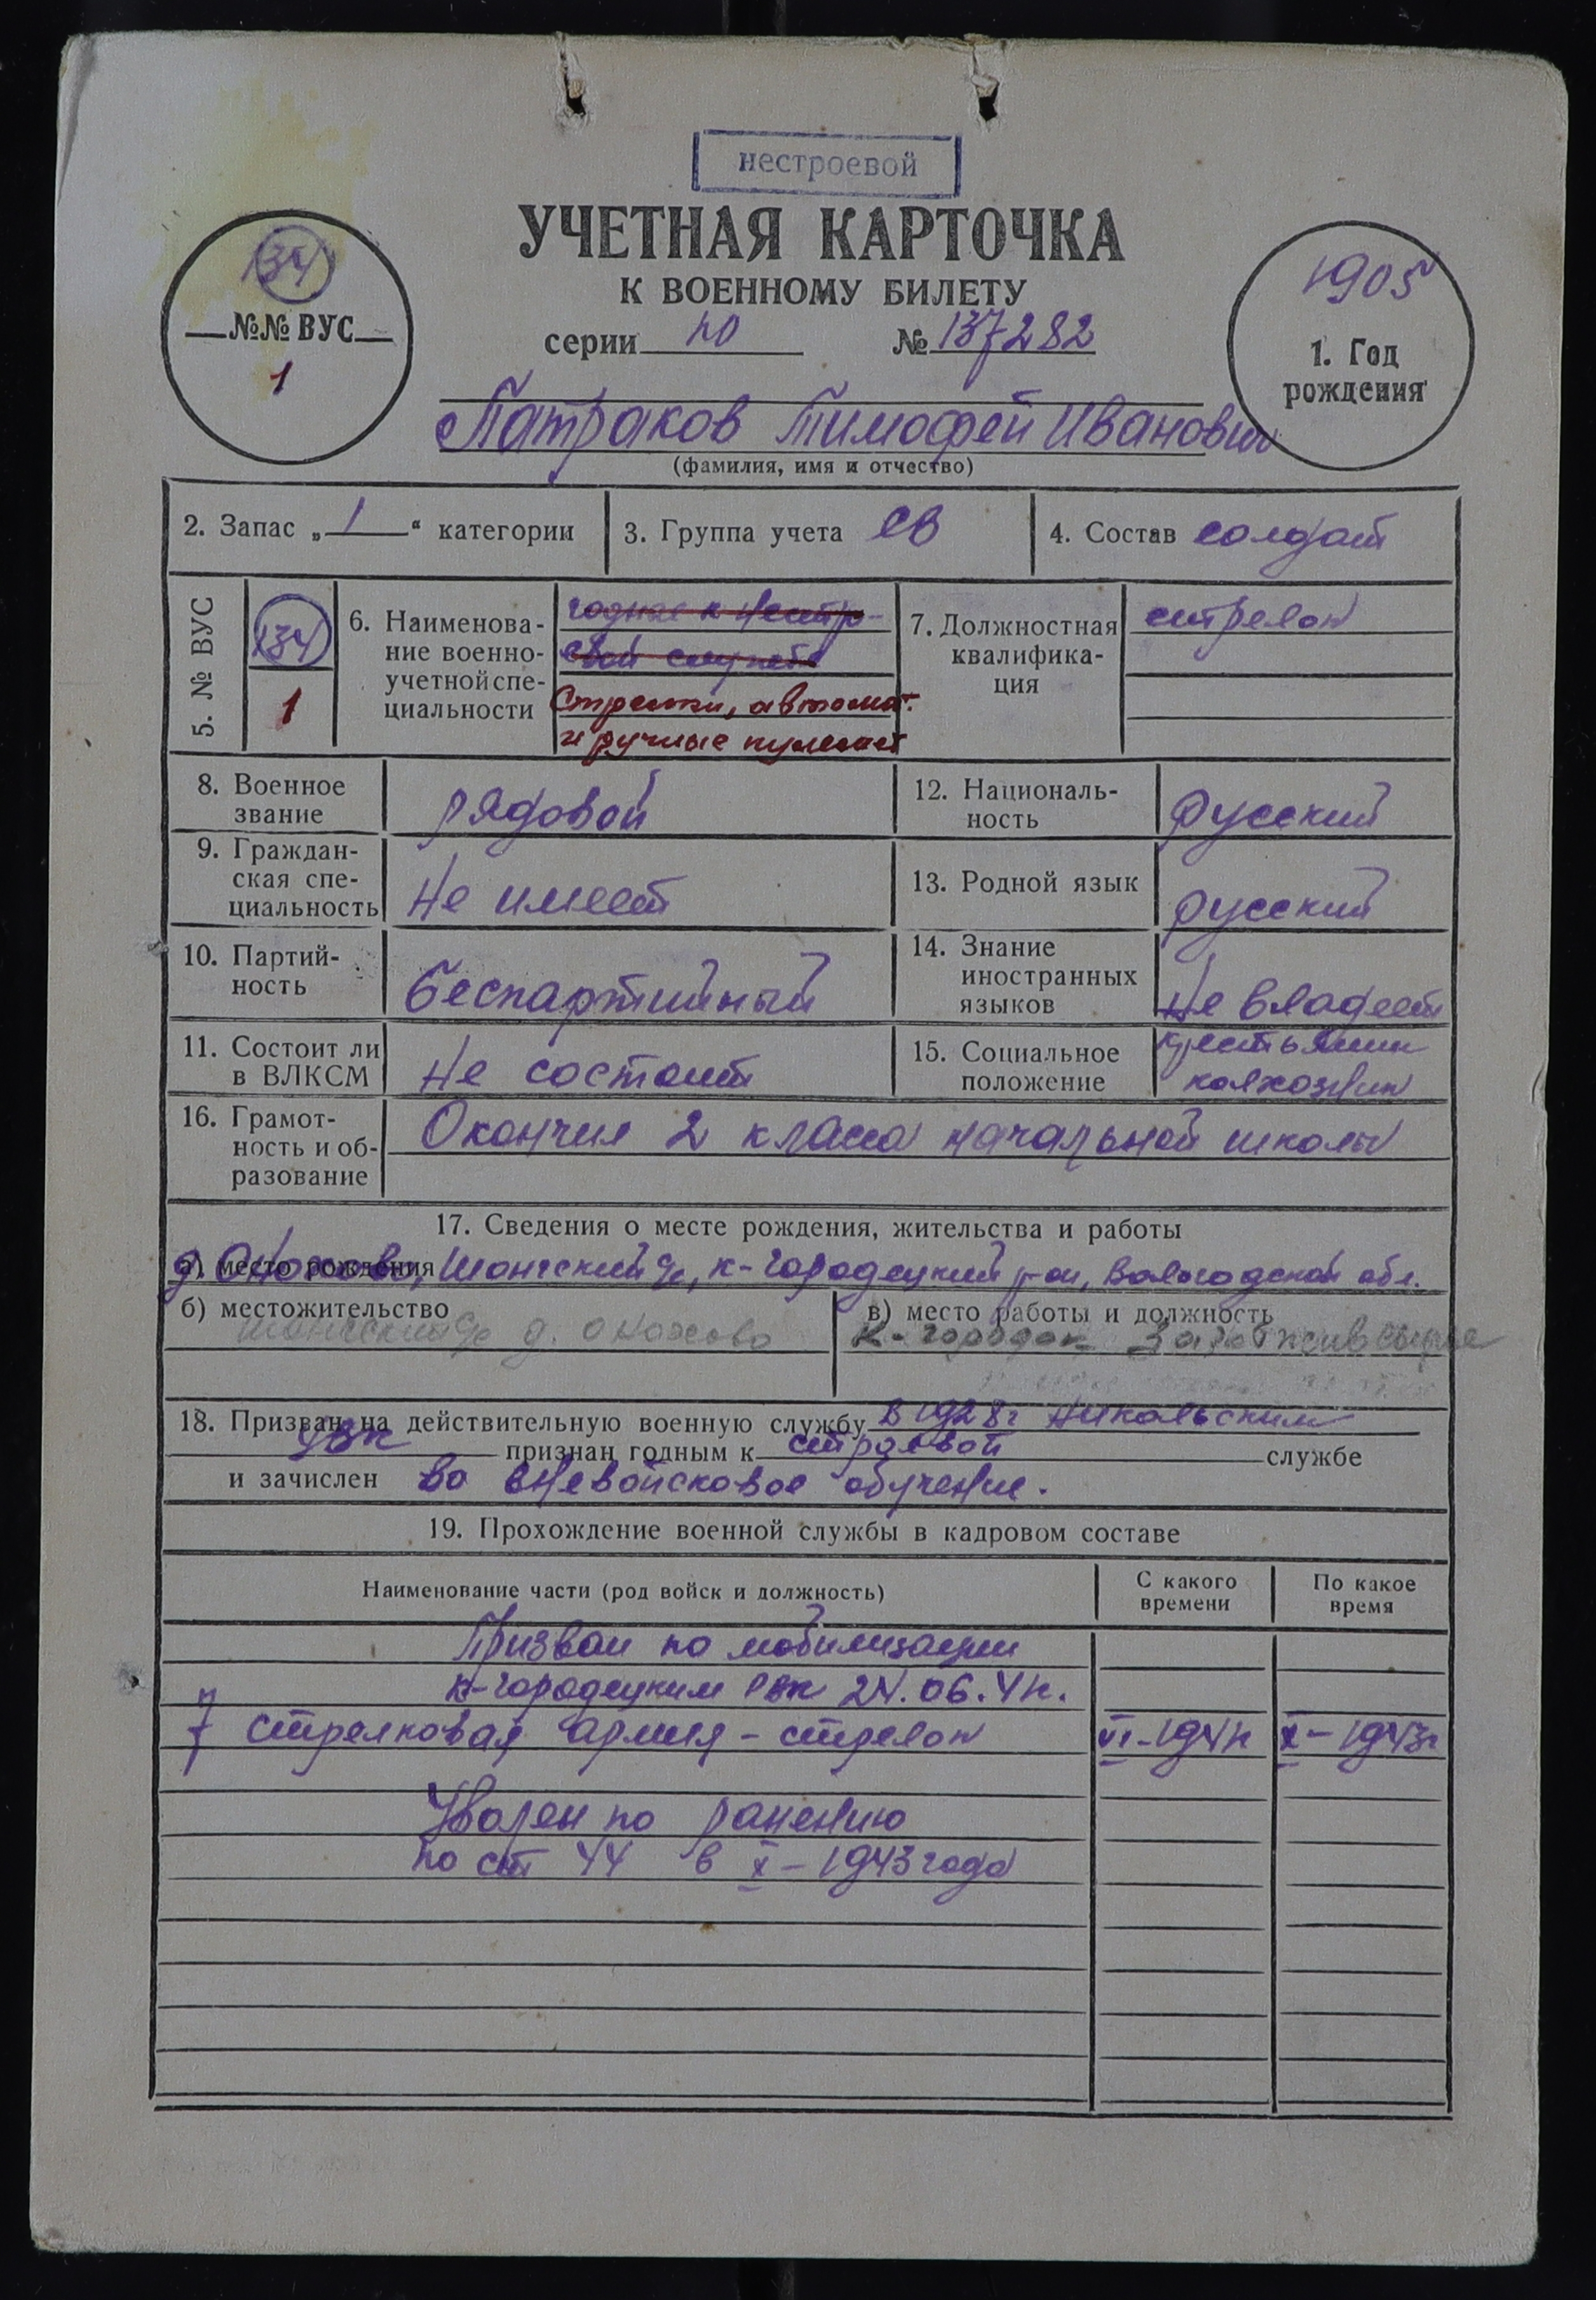 нестроевой
УЧЕТНАЯ КАРТОЧКА
К ВОЕННОМУ БИЛЕТУ
серии № 137282
134
№№ ВУС
1
1905
1. Год
рождения
Патраков Тимофей Иванович
(фамилия, имя и отчество)
2. Запас „ 1 “ категории
3. Группа учета СВ
4. Состав солдат
5. № ВУС
134
1
6. Наименова-
ние военно-
учетной спе-
циальности
годные к нестро-
евой службе
Стрелки, автомат.
и ручные пулемет
7. Должностная
квалифика-
ция
стрелок
8. Военное
звание
рядовой
12. Националь-
ность
русский
9. Граждан-
ская спе-
циальность
не имеет
13. Родной язык
русский
10. Партий-
ность
беспартийный
14. Знание
иностранных
языков
не владеет
11. Состоит ли
в ВЛКСМ
не состоит
15. Социальное
положение
крестьянин
колхозник
16. Грамот-
ность и об-
разование
Окончил 2 класса начальной школы
17. Сведения о месте рождения, жительства и работы
а) место рождения
д. Оножово, Шонгский с/с, К-Городецкий р-он, Вологодской обл.
б) местожительство
Шонгский с/с д. Оножово
в) место работы и должность
К-Городок Заготживсырье
18. Призван на действительную военную службу в 1928г Никольским
УВК признан годным к строевой службе
и зачислен во вневойсковое обучение.
19. Прохождение военной службы в кадровом составе
Наименование части (род войск и должность)
С какого
времени
По какое
время
Призван по мобилизации
К-Городецким РВК 24.06.41г.
7 стрелковая армия - стрелок VI-1941г X-1943г
Уволен по ранению
по ст 44 в X-1943 года